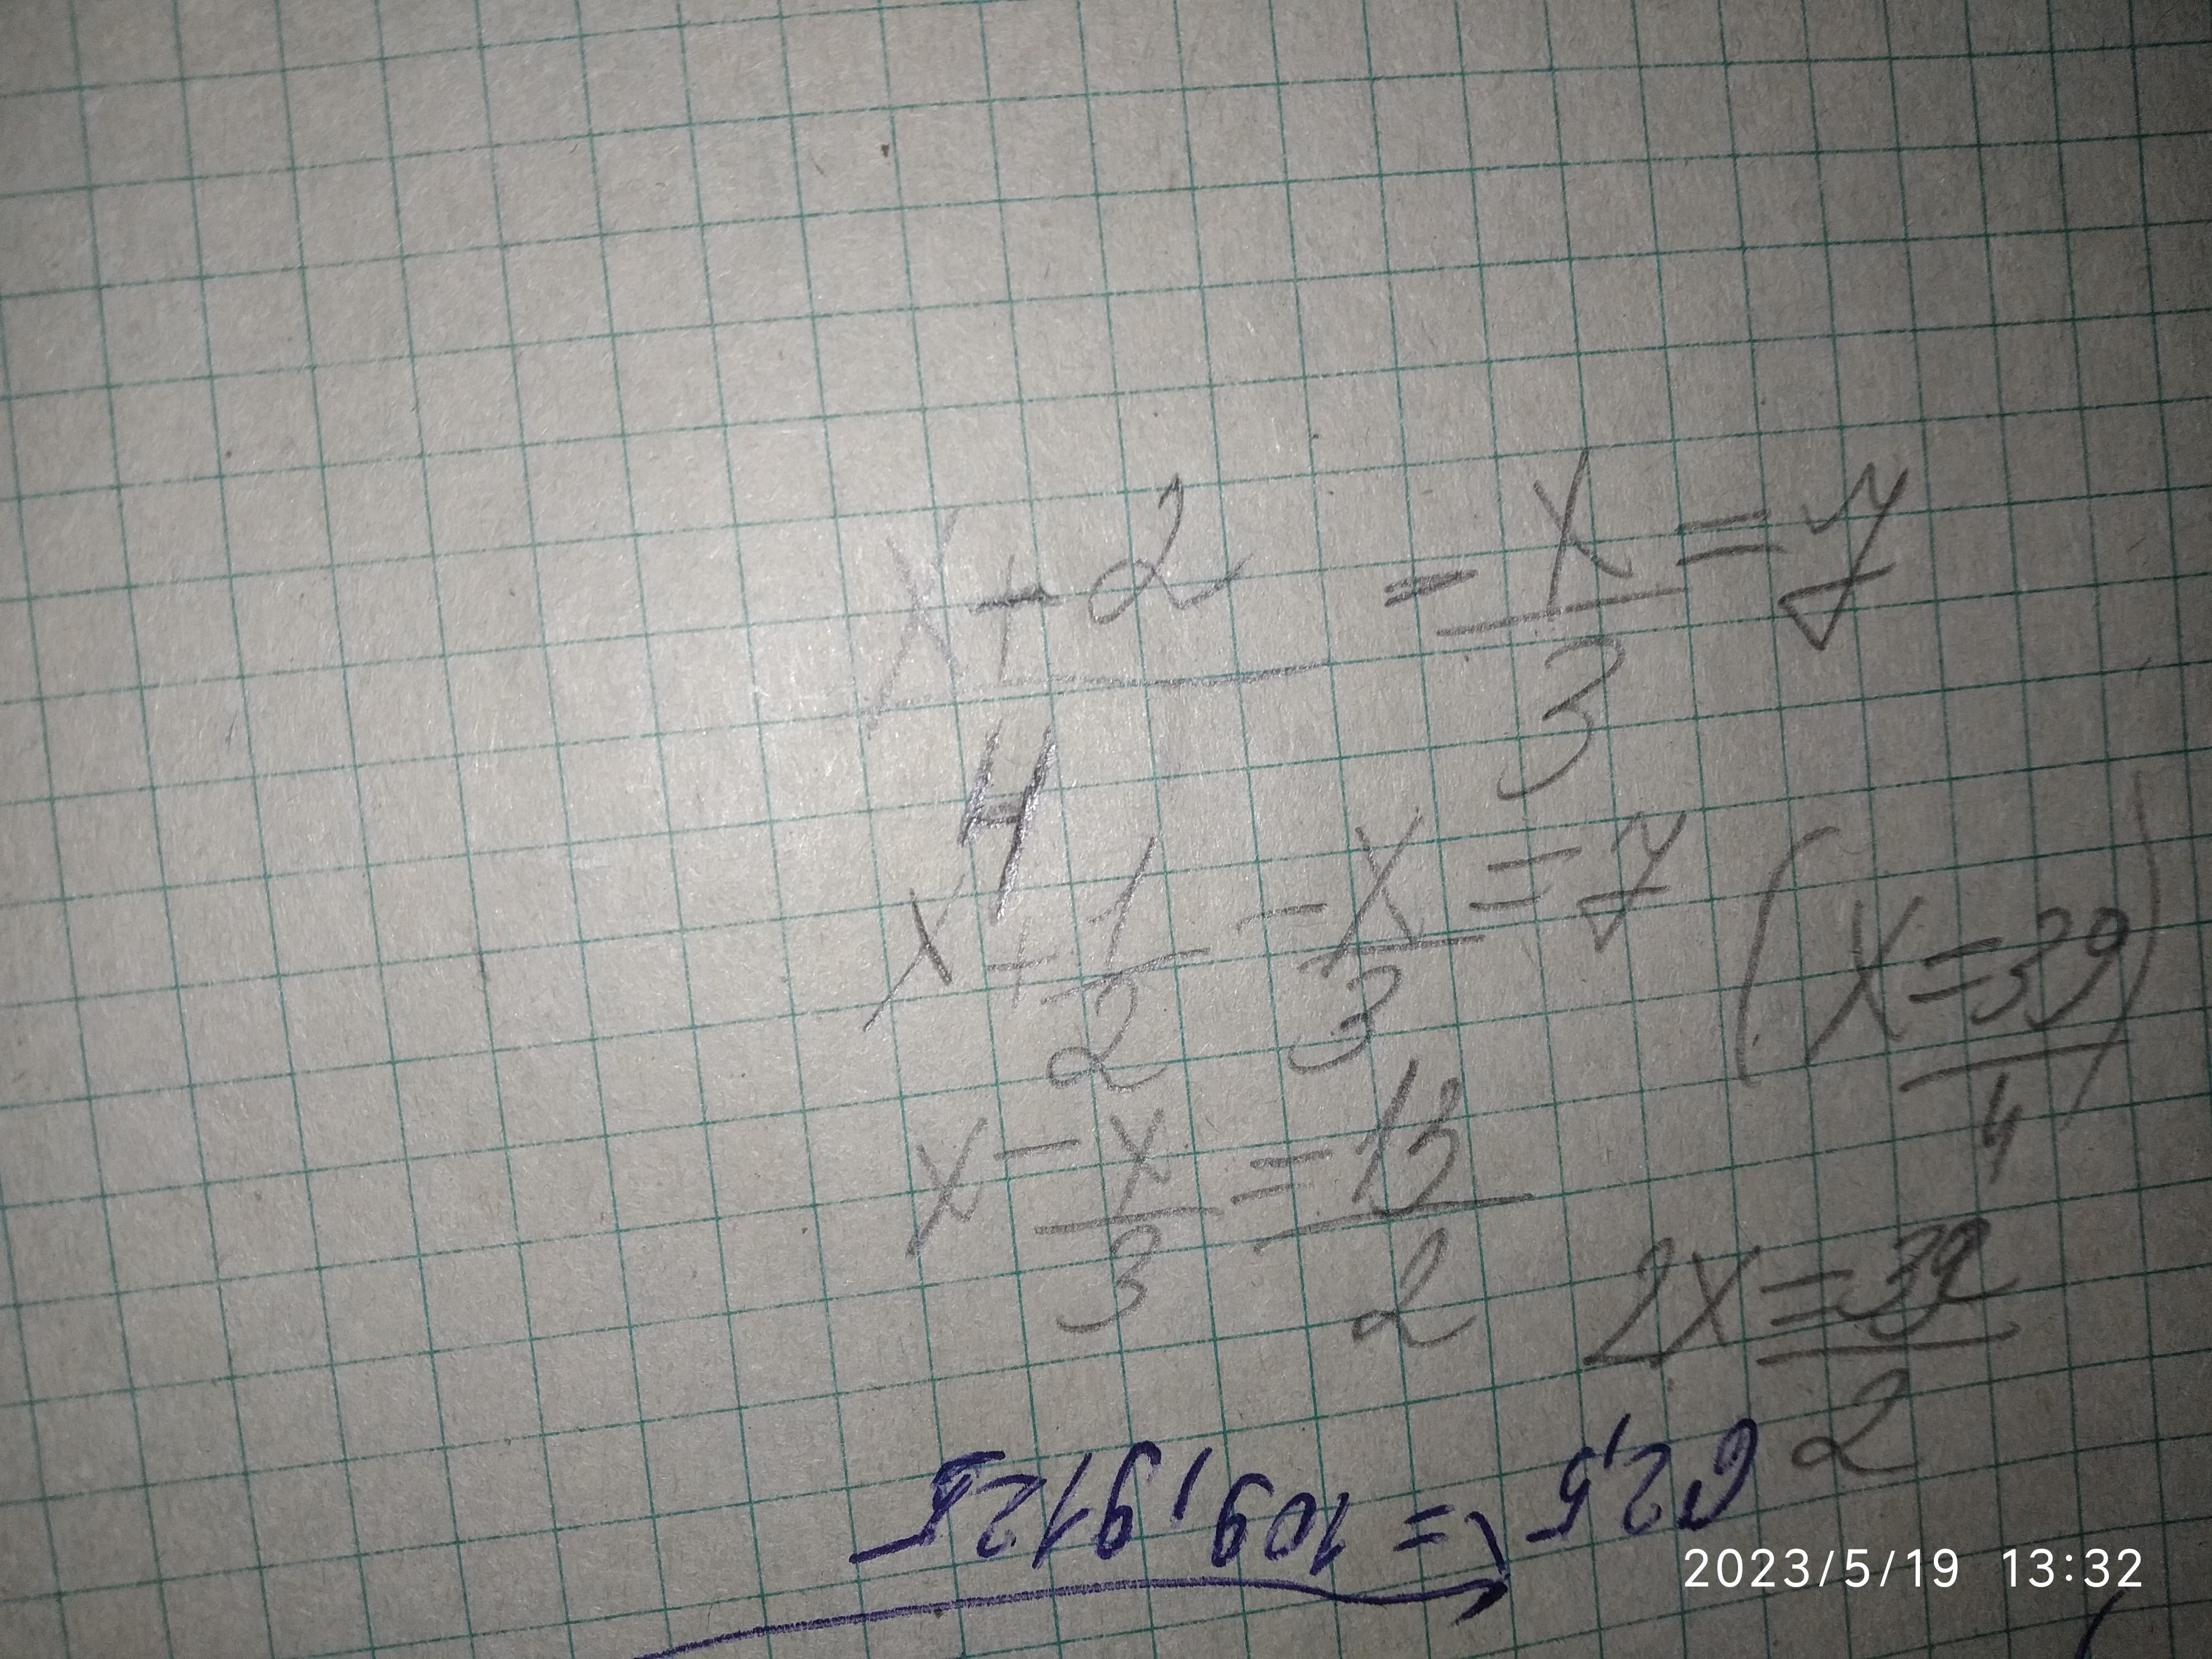 x+2/4 - x/3 = 7
x + 1/2 - x/3 = 7
(x = 39/4)
x - x/3 = 13/2
2x = 39/2
62,5) = 109,9125
2023/5/19 13:32